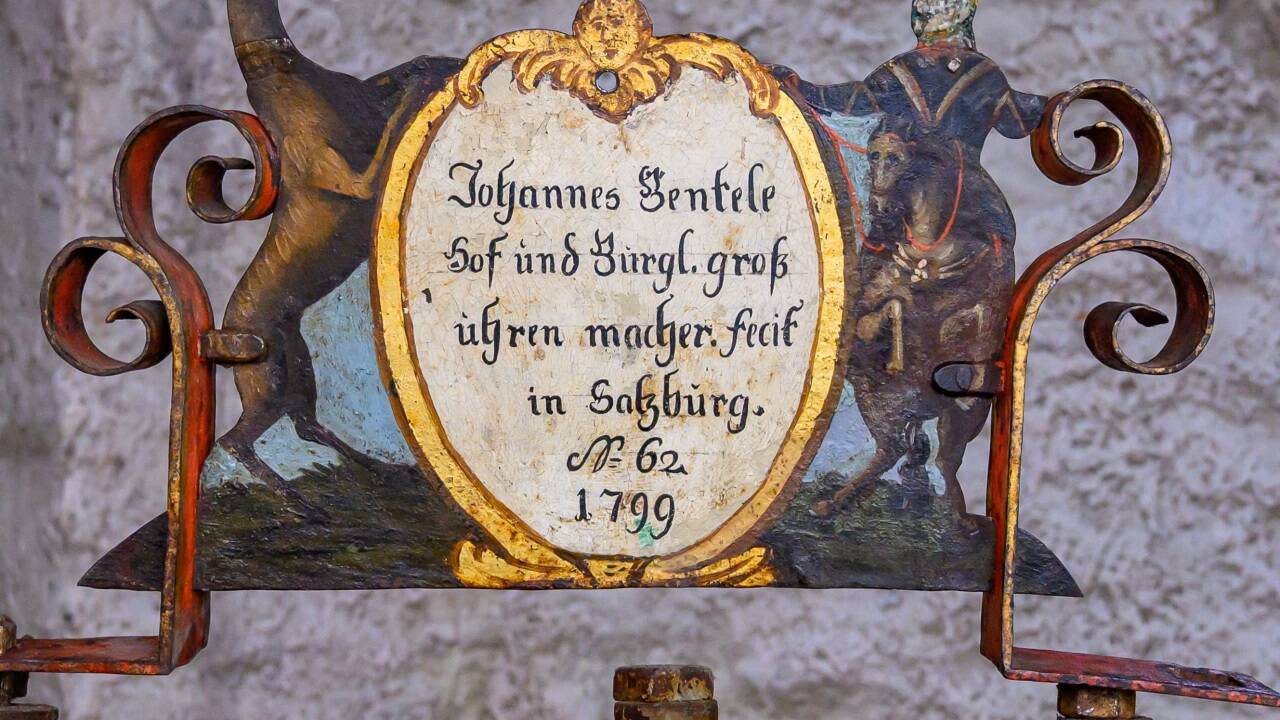 Johannes Bentele
Hof und Burgl. groß
uhren macher. fecit
in Salzburg.
No 62
1799